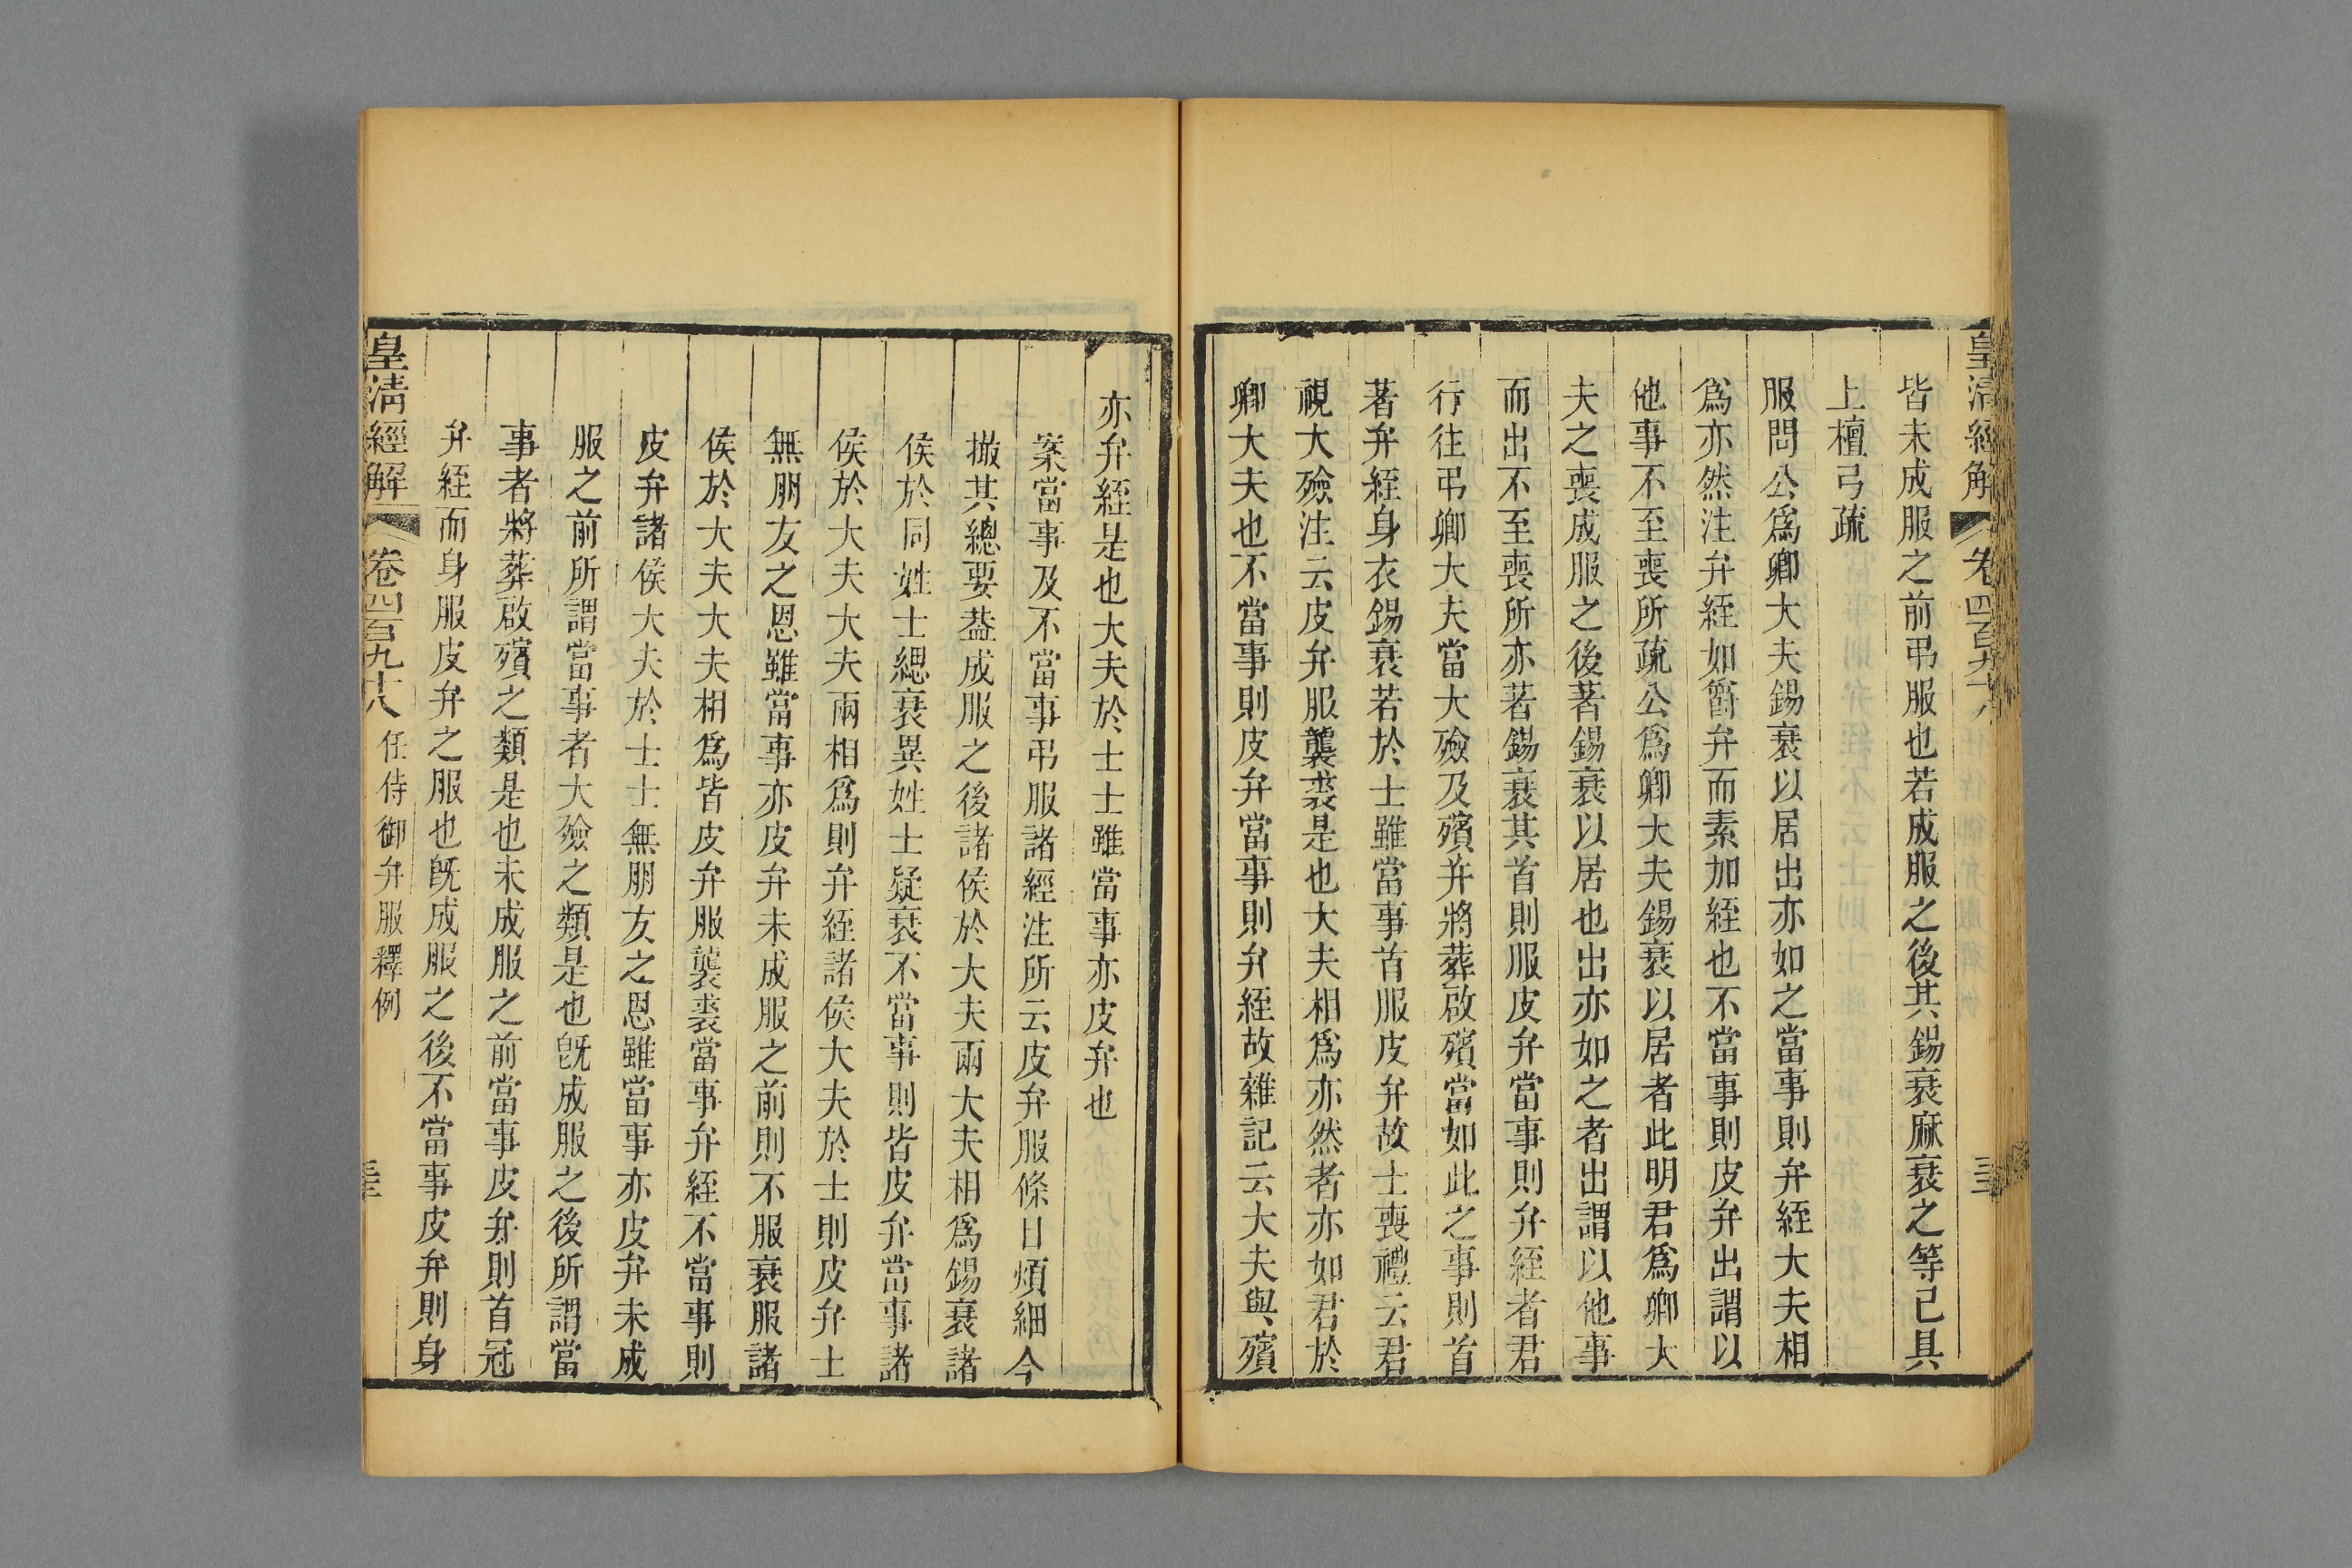 皇清經解
卷四百九十八
皆未成服之前弔服也若成服之後其錫衰麻衰之等已具
上檀弓疏
服問公爲卿大夫錫衰以居出亦如之當事則弁絰大夫相
爲亦然注弁絰如爵弁而素加絰也不當事則皮弁出謂以
他事不至喪所疏公爲卿大夫錫衰以居者此明君爲卿大
夫之喪成服之後著錫衰以居也出亦如之者出謂以他事
而出不至喪所亦著錫衰其首則服皮弁當事則弁絰者君
行往弔卿大夫當大殮及殯并將葬啟殯當如此之事則首
著弁絰身衣錫衰若於士雖當事首服皮弁故士喪禮云君
視大殮注云皮弁服襲裘是也大夫相爲亦然者亦如君於
卿大夫也不當事則皮弁當事則弁絰故雜記云大夫與殯
亦弁絰是也大夫於士士雖當事亦皮弁也
案當事及不當事弔服諸經注所云皮弁服條目煩細今
撮其總要葢成服之後諸侯於大夫兩大夫相爲錫衰諸
侯於同姓士緦衰異姓士疑衰不當事則皆皮弁當事諸
侯於大夫大夫兩相爲則弁絰諸侯大夫於士則皮弁士
無朋友之恩雖當事亦皮弁未成服之前則不服衰服諸
侯於大夫大夫相爲皆皮弁服襲裘當事弁絰不當事則
皮弁諸侯大夫於士士無朋友之恩雖當事亦皮弁未成
服之前所謂當事者大殮之類是也旣成服之後所謂當
事者將葬啟殯之類是也未成服之前當事皮弁則首冠
弁絰而身服皮弁之服也旣成服之後不當事皮弁則身
皇清經解
卷四百九十八
任侍御弁服釋例